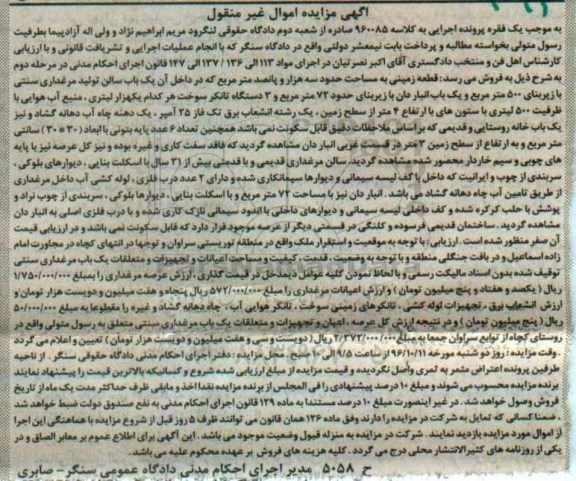 آگهی مزایده اموال غیر منقول
به موجب یک فقره پرونده اجرایی به کلاسه ۹۶۰۰۸۵ صادره از شعبه دوم دادگاه حقوقی لنگرود مریم ابراهیم نژاد و ولی اله آزادپیما بطرفیت
رسول متولی بخواسته مطالبه و پرداخت بابت نیمعشر دولتی واقع در دادگاه سنگر که با انجام عملیات اجرایی و تشریفات قانونی و با ارزیابی
کارشناس اهل فن و منتخب دادگستری آقای اکبر نصرتیان در اجرای مواد ۱۱۳ الی ۱۳۶ / ۱۳۷ الی ۱۴۷ قانون اجرای احکام مدنی در مرحله دوم
به شرح ذیل به فروش می رسد: قطعه زمینی به مساحت حدود سه هزار و پانصد متر مربع که در داخل آن یک باب سالن تولید مرغداری سنتی
با زیربنای ۵۰۰ متر مربع و یک باب انبار دان با زیربنای حدود ۷۲ متر مربع و ۳ دستگاه تانکر سوخت هر کدام یکهزار لیتری ، منبع آب هوایی با
ظرفیت ۵۰۰ لیتری با ستون های با ارتفاع ۴ متر از سطح زمین ، یک رشته انشعاب برق تک فاز ۲۵ آمپر ، یک دهنه چاه آب دهانه گشاد و نیز
یک باب خانه روستایی و قدیمی که براساس ملاحظات دقیق قابل سکونت نمی باشد همچنین تعداد ۶ عدد پایه بتونی با ابعاد (۳۰ * ۳۰) سانتی
متر مربع و به ارتفاع از سطح زمین ۲ متر در قسمت غربی انبار دان مشاهده گردید که فاقد سفت کاری و غیره بوده و نیز کل عرصه نیز با پایه
های چوبی و سیم خاردار محصور شده مشاهده گردید. سالن مرغداری قدیمی و با قدمتی بیش از ۳۱ سال با اسکلت بنایی ، دیوارهای بلوکی ،
سربندی از چوب و ایرانیت که داخل با کف لیسه سیمانی و دیوارها سیمانکاری شده و دارای ۲ عدد درب فلزی ، لوله کشی آب داخل مرغداری
از طریق تامین آب چاه دهانه گشاد می باشد. انبار دان نیز با مساحت ۷۲ متر مربع و با اسکلت بنایی ، دیوارها بلوکی ، سربندی از چوب نراد و
پوشش با حلب کرکره شده و کف داخلی لیسه سیمانی و دیوارهای داخلی با اندود سیمانی نازک کاری شده و با درب فلزی اصلی به انبار دان
مشاهده گردید . ساختمان قدیمی فرسوده و کلنگی در قسمتی دیگر از عرصه موجود قرار دارد که قابل سکونت نمی باشد و در ارزیابی قیمت
آن صفر منظور شده است . ارزیابی : با توجه به موقعیت و استقرار ملک واقع در منطقه توریستی سراوان و توجها در انتهای کچاه در مجاورت امام
زاده اسماعیل و در بافت جنگلی منطقه و با توجه به وضعیت ، قدمت ، کیفیت و مساحت اعیانات و تجهیزات و متعلقات یک باب مرغداری سنتی
توقیف شده بدون اسناد مالکیت رسمی و با لحاظ نمودن کلیه عوامل ذیمدخل در قیمت گذاری ، ارزش عرصه مرغداری را بمبلغ ۱/۷۵۰/۰۰۰/۰۰۰
ریال ( یکصد و هفتاد و پنج میلیون تومان ) و ارزش اعیانات مرغداری را بمبلغ ۵۷۲/۰۰۰/۰۰۰ ریال پنجاه و هفت میلیون و دویست هزار تومان و
ارزش انشعاب برق ، تجهیزات لوله کشی ، تانکرهای زمینی سوخت ، تانکر هوایی آب ، چاه دهانه گشاد و غیره را مقطوعا به مبلغ ۵۰/۰۰۰/۰۰۰
ریال ( پنج میلیون تومان ) و در نتیجه ارزش کل عرصه ، اعیان و تجهیزات و متعلقات یک باب مرغداری سنتی متعلق به رسول متولی واقع در
روستای کچاه از توابع سراوان جمعا به مبلغ ۲/۳۷۲/۰۰۰/۰۰۰ ریال (دویست و سی و هفت میلیون و دویست هزار تومان ) تعیین و اعلام می گردد
. وقت مزایده : روز دو شنبه مورخه ۹۶/۱۰/۱۱ از ساعت ۹/۵ الی ۱۰ صبح . محل مزایده : دفتر اجرای احکام مدنی دادگاه حقوقی سنگر . از ناحیه
طرفین پرونده اعتراض مثمر به ثمری واصل نگردیده و قیمت مزایده از مبلغ ارزیابی شده شروع و کسانیکه بالاترین قیمت را پیشنهاد نمایند
برنده مزایده محسوب می شوند و مبلغ ۱۰ درصد پیشنهادی را فی المجلس از برنده مزایده نقدا اخذ و مابقی ظرف حداکثر مدت یک ماه از تاریخ
فروش وصول خواهد شد. در غیر اینصورت مبلغ ۱۰ درصد مستندا به ماده ۱۲۹ قانون اجرای احکام مدنی به نفع صندوق دولت ضبط خواهد شد
. ضمنا کسانی که تمایل به شرکت در مزایده را دارند وفق ماده ۱۲۶ همان قانون می توانند ظرف ۵ روز قبل از شروع مزایده با هماهنگی این اجرا
از اموال مورد مزایده بازدید نمایند . شرکت در مزایده به منزله قبول وضعیت موجود می باشد. این آگهی برای اطلاع عموم بر معابر الصاق و در
یکی از روزنامه های کثیرالانتشار محلی درج می گردد . کلیه هزینه های فروش بر عهده محکوم علیه می باشد.
ح ۵۰۵۸ مدیر اجرای احکام مدنی دادگاه عمومی سنگر - صابری